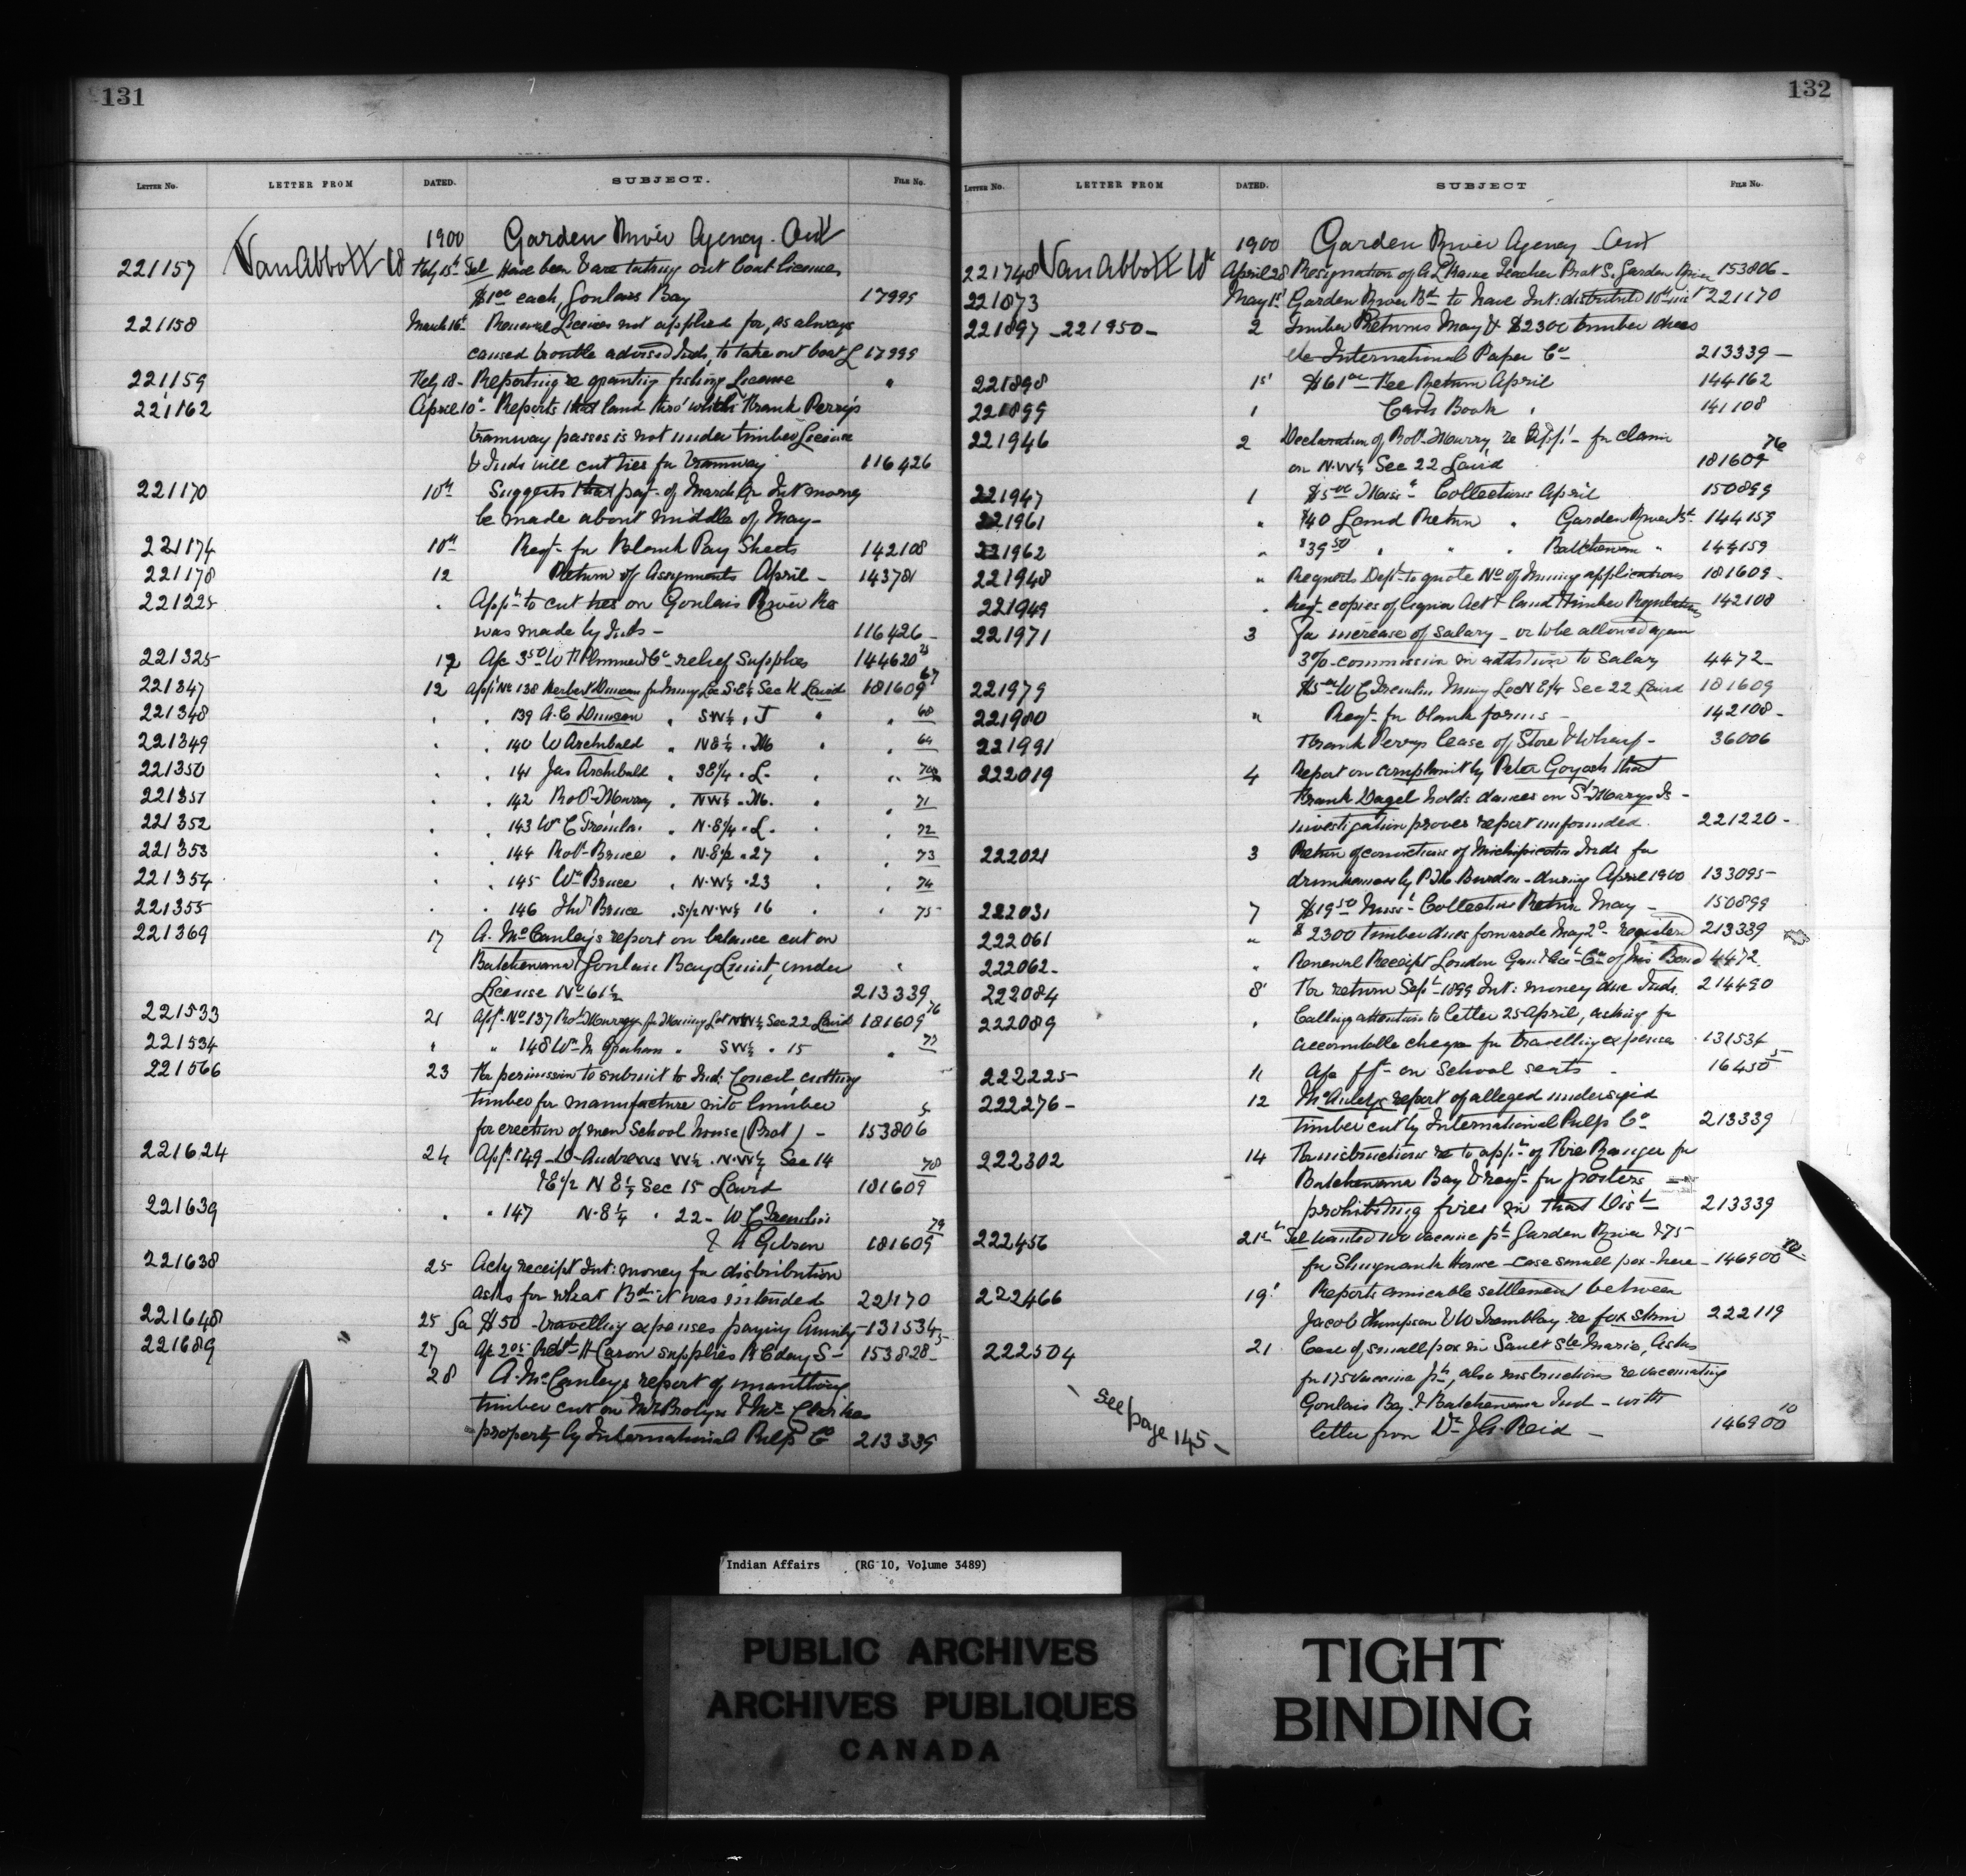 131
LETTER NO. LETTER FROM DATED. SUBJECT. FILE NO.
1900 Garden River Agency. Ont
221157 Van Abbott W Feby 15th Tel Have been & are taking out boat licenses
$1.00 each, Goulais Bay 17999
221158 March 16th Renewal Licenses not applied for, as always
caused trouble advised Inds, to take out boat L 17999
221159 Feby 18 - Reporting re granting fishing License "
221162 April 10th - Reports that land thro' which Frank Perry's
tramway passes is not under timber License
& Inds will cut ties for tramway 116426
221170 10th Suggests that payt. of March Qr Int money
be made about middle of May -
221174 10th Reqt. for Blank Pay Sheets 142108
221178 12 Return of Assignments April - 143781
221225 " Appn to cut ties on Goulais River Re
was made by Inds - 116426 -
221325 12 Ap 3.50 W H Plummer & Co relief Supplies 144620 23
221347 12 Appl No 138 Herbert Duncan for Mining Loc S.E¼ Sec K Laird 181609 67
221348 " " 139 A. C Duncan " SW¼ " J " " 68
221349 " " 140 W Archibald " NE¼ " M " " 69
221350 " " 141 Jas Archibald " SE¼ " L. " " 70
221351 " " 142 Robt. Mowry " NW¼ " M. " " 71
221352 " " 143 W C Tremlin " N.E¼ " L. " " 72
221353 " " 144 Robt. Bruce " N.E½ " 27 " " 73
221354 " " 145 Wm Bruce " N.W¼ " 23 " " 74
221355 " " 146 Thos Bruce " S½ N.W¼ 16 " " 75
221369 17 A. McCauley's report on balance cut on
Batchewana & Goulais Bay Limit, under "
License No 61½ 213339
221533 21 Appl. No 137 Robt Mowry for Mining Lot NW¼ Sec 22 Laird 181609 76
221534 " " 148 Wm M Graham " SW¼ " 15 " 77
221566 23 For permission to submit to Ind: Council, cutting
timber for manufacture into lumber
for erection of new School house (Prot) - 153806 5
221624 24 Appl. 149 - D. Andrews W½ N.W¼ Sec 14
& E½ N E¼ Sec 15 Laird 181609 78
221639 " " 147 N.E¼ " 22 - W C Tremlin
& H Gibson 181609 79
221638 25 Ackg receipt Int: money for distribution
asks for what Bd. it was intended 221170
221648 25 for $50 - travelling expenses paying Annuity - 131534
221689 27 Ap 2.05 H Caron supplies R C day S - 153828 - 5
28 A. McCauley's report of
timber cut on Mr Brolyn & Mr Clarikes
property by International Pulp Co 213339
132
LETTER NO. LETTER FROM DATED. SUBJECT FILE NO.
1900 Garden River Agency Ont
221748 Van Abbott Wm April 28 Resignation of A L Teacher Prot S. Garden River 153806 -
221873 May 1st Garden River Bd. to have Int: distributed 10th inst 221170
221897 - 221950 - 2 Timber Returns May & $2300 timber dues
International Paper Co - 213339 -
221898 1st $61.00 Fee Return April 144162
221899 1 Cash Book " 141108
221946 2 Declaration of Robt. Mowry, re Appl. - for claim
on N.W¼ Sec 22 Laird 181609 76
221947 1 $5.00 Miss. Collections April 150899
221961 " $40 Land Return " Garden River Bd. 144159
221962 " $39.50 " " " Batchewana " 144159
221948 " Requests Dept. to quote No of Mining applications 181609 -
221949 " Reqt. copies of liquor Act & land & timber Regulations 142108
221971 3 for increase of salary - or to be allowed again
3% commission in addition to Salary 4472 -
221979 $5.00 W C Tremlin Mining Loc N E¼ Sec 22 Laird 181609
221980 " Reqt. for blank forms - 142108 -
221991 Frank Perrys lease of Store & Wharf - 36006
222019 4 Report on complaint by Peter Goyash that
Frank Dagel holds dances on St Marys Is -
investigation proves report unfounded. 221220 -
222021 3 Return of convictions of Michipicoten Inds for
drunkenness by P. M. Burden - during April 1900 133095 -
222031 7 $19.50 Miss. Collections Return May - 150899
222061 " $2300 timber dues forwarded May 2nd - registered 213339
222062 - " Renewal Receipt London Guar. Acct. Co of his Bond 4472.
222084 8' For return Sept. 1899 Int: money due Inds. 214490
222089 " Calling attention to letter 25 April, asking for
accountable cheque for travelling expenses 131534
222225 - 11 Ap fft. on School seats - 16450 5
222276 - 12 McAuley's report of alleged undersized
timber cut by International Pulp Co 213339
222302 14 For instructions re to appt. of Fire Ranger for
Batchewana Bay & reqt. for posters
prohibiting fires in that Dist. 213339
222456 21st Tel wanted 100 vaccine pts Garden River & 75
for Shingwauk Home - case small pox - here - 146900 10
222466 19' Reports amicable settlement between
Jacob Thompson & W Tremblay re fox skin 222119
222504 21 Case of smallpox in Sault Ste Marie, Asks
for 175 vaccine pts, also instructions re vaccinating
Goulais Bay & Batchewana Ind - with
letter from Dr J A. Reid - 146900 10
see page 145 -
Indian Affairs (RG 10, Volume 3489)
PUBLIC ARCHIVES
ARCHIVES PUBLIQUES
CANADA
TIGHT
BINDING